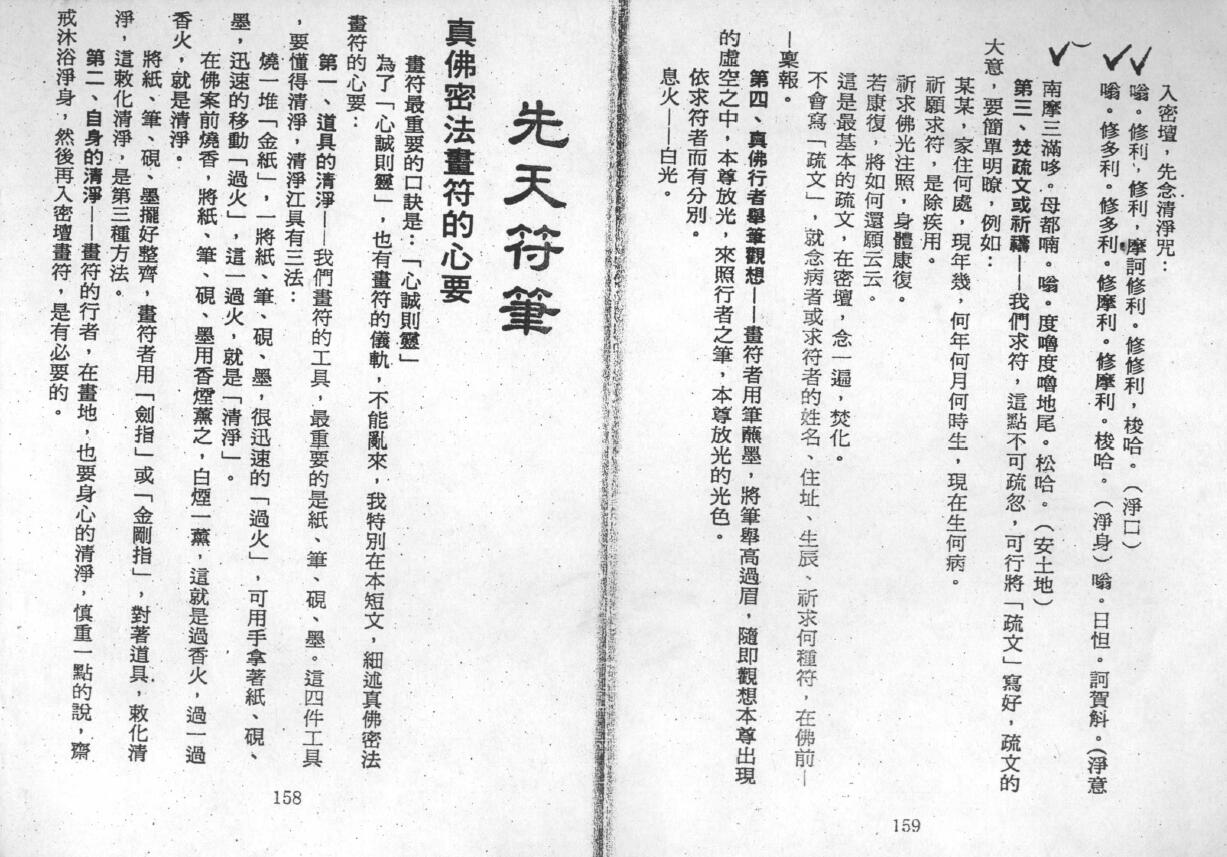 先天符筆
真佛密法畫符的心要
畫符最重要的口訣是:「心誠則靈」
為了「心誠則靈」,也有畫符的儀軌,不能亂來,我特別在本短文,細述真佛密法
畫符的心要:
第一、道具的清淨——我們畫符的工具,最重要的是紙、筆、硯、墨。這四件工具
,要懂得清淨,清淨江具有三法:
燒一堆「金紙」,一將紙、筆、硯、墨,很迅速的「過火」,可用手拿著紙、硯、
墨,迅速的移動「過火」,這一過火,就是「清淨」。
在佛案前燒香,將紙、筆、硯、墨用香煙薰之,白煙一薰,這就是過香火,過一過
香火,就是清淨。
將紙、筆、硯、墨擺好整齊,畫符者用「劍指」或「金剛指」,對著道具,敕化清
淨,這敕化清淨,是第三種方法。
第二、自身的清淨——畫符的行者,在畫地,也要身心的清淨,慎重一點的說,齋
戒沐浴淨身,然後再入密壇畫符,是有必要的。
158
入密壇,先念清淨咒:
嗡。修利,修利,摩訶修利。修修利,梭哈。(淨口)
嗡。修多利。修多利。修摩利。修摩利。梭哈。(淨身)嗡。日怛。訶賀斛。(淨意
南摩三滿哆。母都喃。嗡。度嚕度嚕地尾。松哈。(安土地)
第三、焚疏文或祈禱——我們求符,這點不可疏忽,可行將「疏文」寫好,疏文的
大意,要簡單明瞭,例如:
某某,家住何處,現年幾,何年何月何時生,現在生何病。
祈願求符,是除疾用。
祈求佛光注照,身體康復。
若康復,將如何還願云云。
這是最基本的疏文,在密壇,念一遍,焚化。
不會寫「疏文」,就念病者或求符者的姓名、住址、生辰、祈求何種符,在佛前—
—稟報。
第四、真佛行者舉筆觀想——畫符者用筆蘸墨,將筆舉高過眉,隨即觀想本尊出現
的虛空之中,本尊放光,來照行者之筆,本尊放光的光色。
依求符者而有分別。
息火——白光。
159